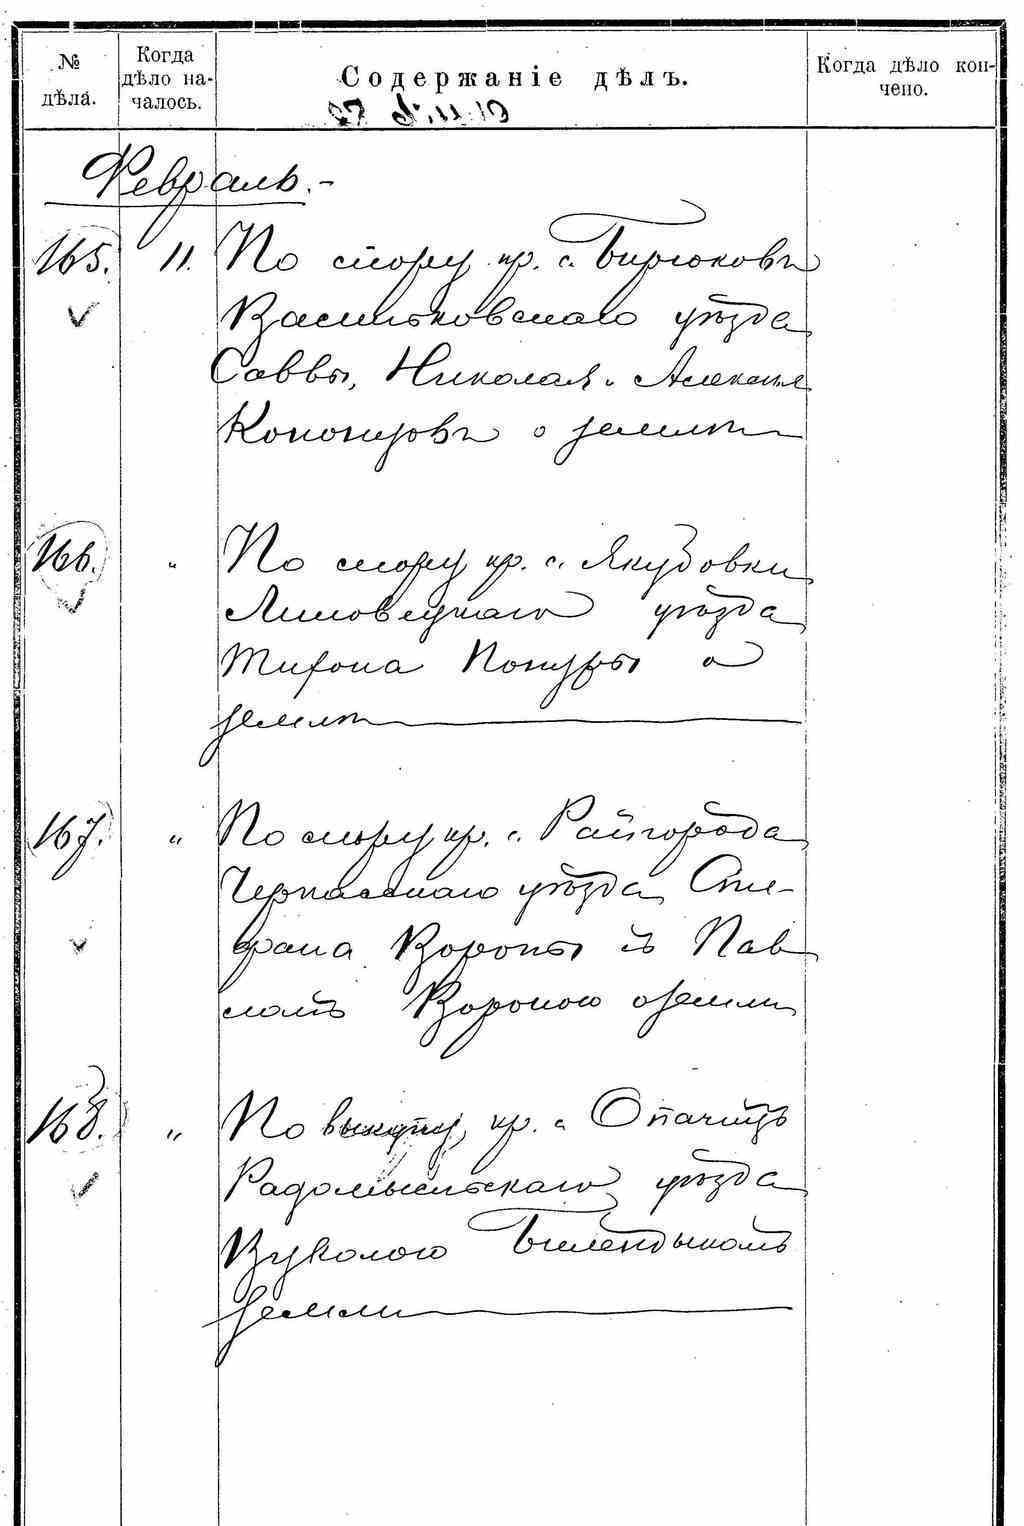 № дѣла.
Когда дѣло на-
чалось.
Содержаніе дѣлъ.
Когда дѣло кон-
чено.
Февраль.-
165. 11. По спору кр. с. Бирюковъ
Васильковскаго уѣзда
Саввы, Николая и Алексѣя
о землѣ
166. " По спору кр. с. Якубовки
Липовецкаго уѣзда
Тихона о
землѣ
167. " По спору кр. с. Райгорода
Черкасскаго уѣзда Сте-
фана Вороны съ Пав-
ломъ Вороною о земли
168. " По выкупу, кр. с. Опачичъ
Радомысльскаго уѣзда
Вуколою Билендыкомъ
земли